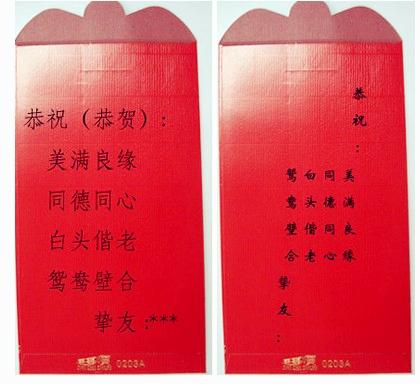 恭祝（恭贺）：
美满良缘
同德同心
白头偕老
鸳鸯壁合
挚友：***
0203A
恭祝：
美满良缘
同德同心
白头偕老
鸳鸯壁合
挚友：
0203A